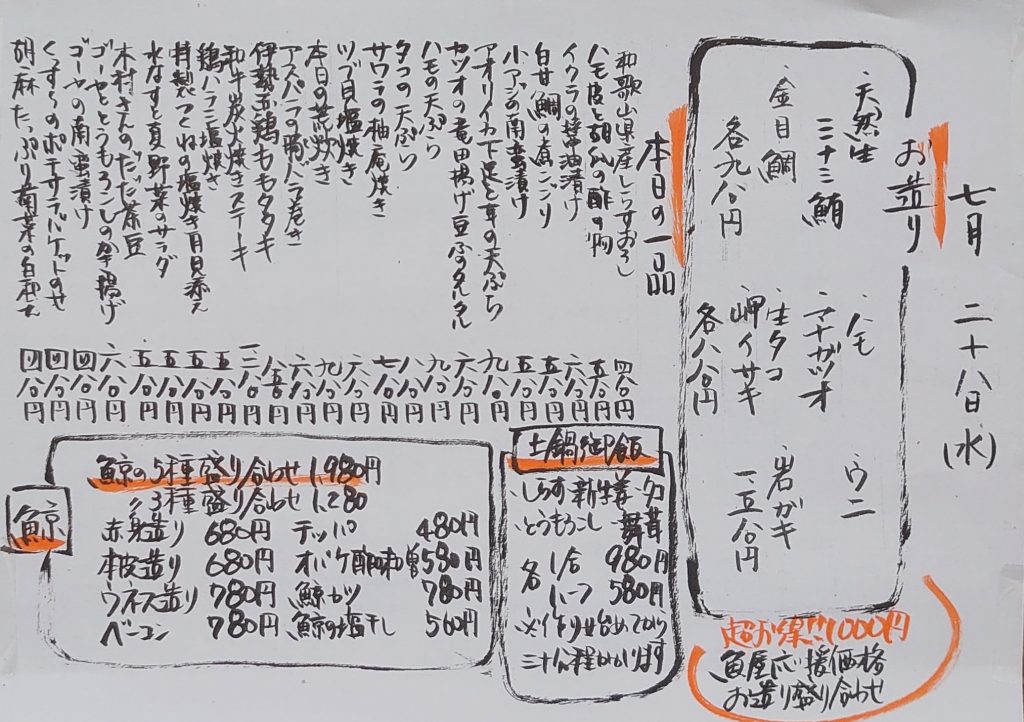 七月 二十八日(水)
お造り
天然生 ハモ ウニ
三十三鮪 マナガツオ
金目鯛 生タコ 岩ガキ
各九八〇円 岬イサキ 一五〇〇円
各八八〇円
超お得!!1000円
魚屋応援価格
お造り盛り合わせ
本日の一品
和歌山県産しらすおろし 四八〇円
ハモ皮と胡瓜の酢の物 五八〇円
イクラの醤油漬け 六八〇円
白甘鯛の煮こごり 五八〇円
小アジの南蛮漬け 五八〇円
アオリイカ下足と耳の天ぷら
カツオの竜田揚げ豆ふタルタル
ハモの天ぷら
タコの天ぷら
サワラの柚庵焼き
ツブ貝塩焼き
本日の荒炊き
アスパラの豚バラ巻き
伊勢赤鶏ももタタキ
和牛炭火焼きステーキ
鶏ハラミ塩焼き
特製つくねの塩焼き月見添え
水なすと夏野菜のサラダ
木村さんのだだ茶豆
ゴーヤととうもろこしのかき揚げ
ゴーヤの南蛮漬け
くん玉のポテサラバケットのせ
胡麻たっぷり菊菜の白和え
土鍋御飯
・しらす新生姜・タコ
・とうもろこし・舞茸
各 1合 980円
ハーフ 580円
※作り始めてから
三十分程かかります
鯨
鯨の5種盛り合わせ 1,980円
〃3種盛り合わせ 1,280
赤身造り 680円 テッパ 480円
本皮造り 680円 オバケ酢味噌 580円
ウネス造り 780円 鯨カツ 780円
ベーコン 780円 鯨の塩干し 560円